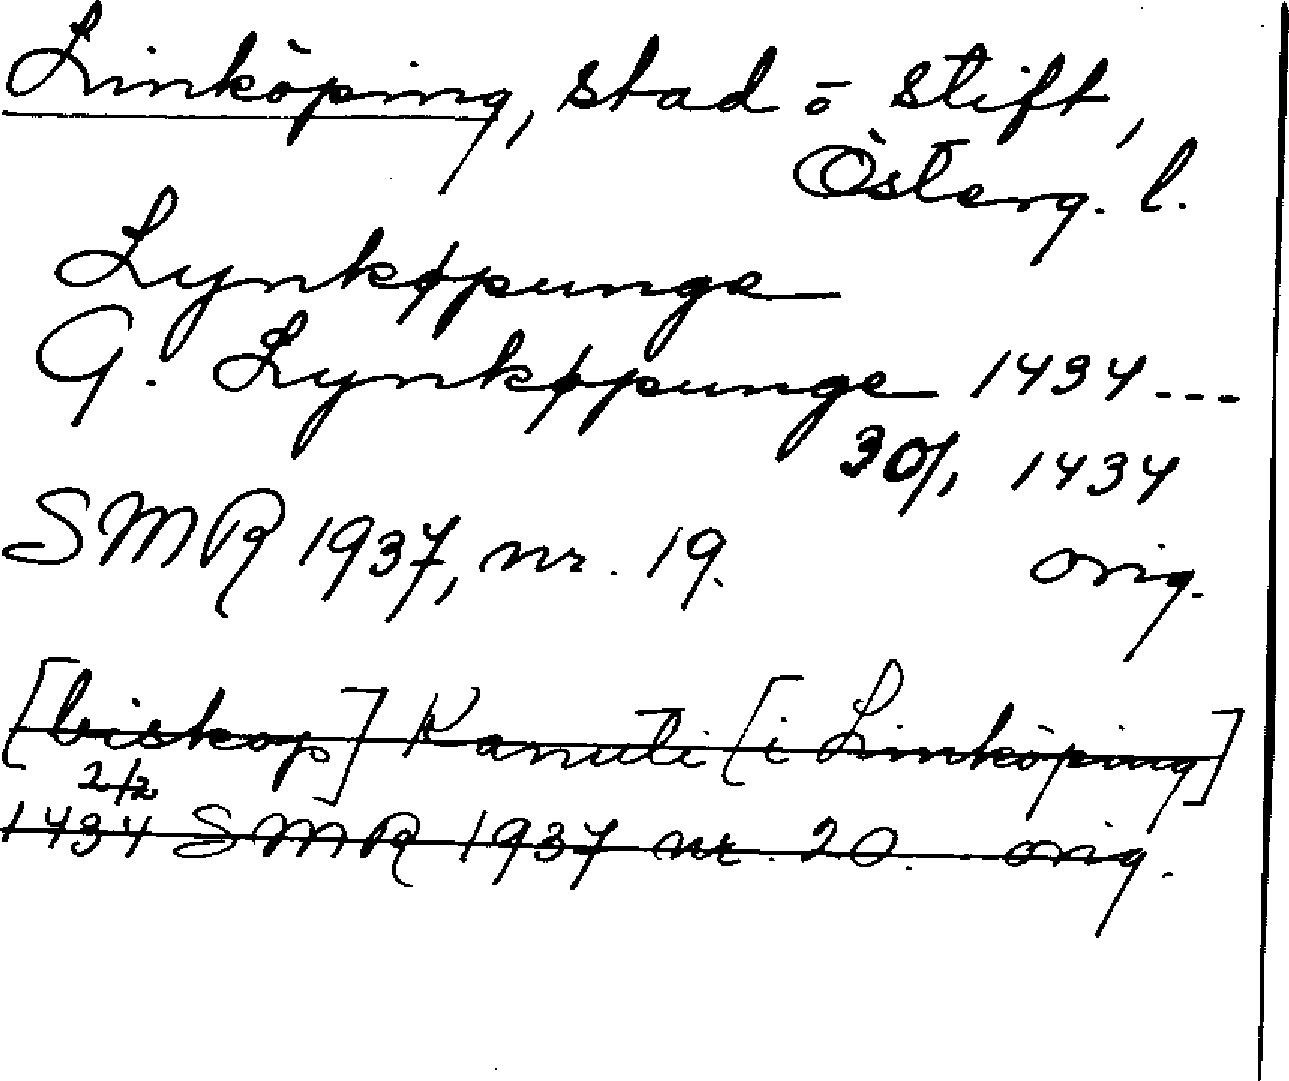 Linköping, stad o stift,
Österg. l.
Lynkøpunge
G. Lynkøpunge 1434---
30/1 1434
SMR 1937, nr. 19. orig.
[biskop] Kanuti [i Linköping]
2/2
1434 SMR 1937 nr. 20. orig.